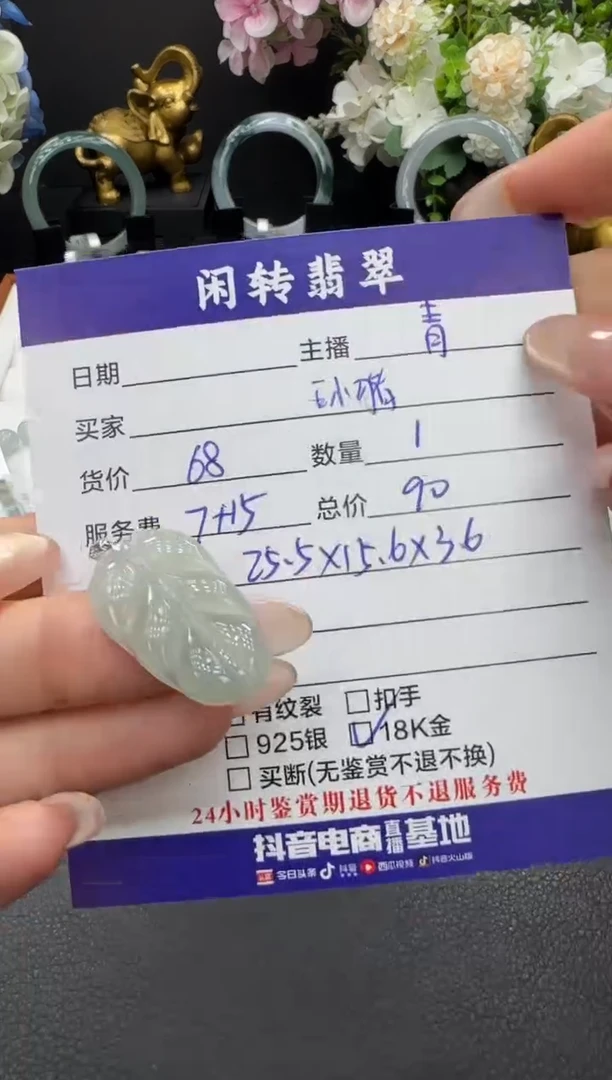 闲转翡翠
日期 主播 青
买家
货价 68 数量 1
服务费 7+15 总价 90
25.5×15.6×3.6
有纹裂 扣手
925银 18K金
买断(无鉴赏不退不换)
24小时鉴赏期退货不退服务费
抖音电商直播基地
今日头条 抖音 西瓜视频 抖音火山版